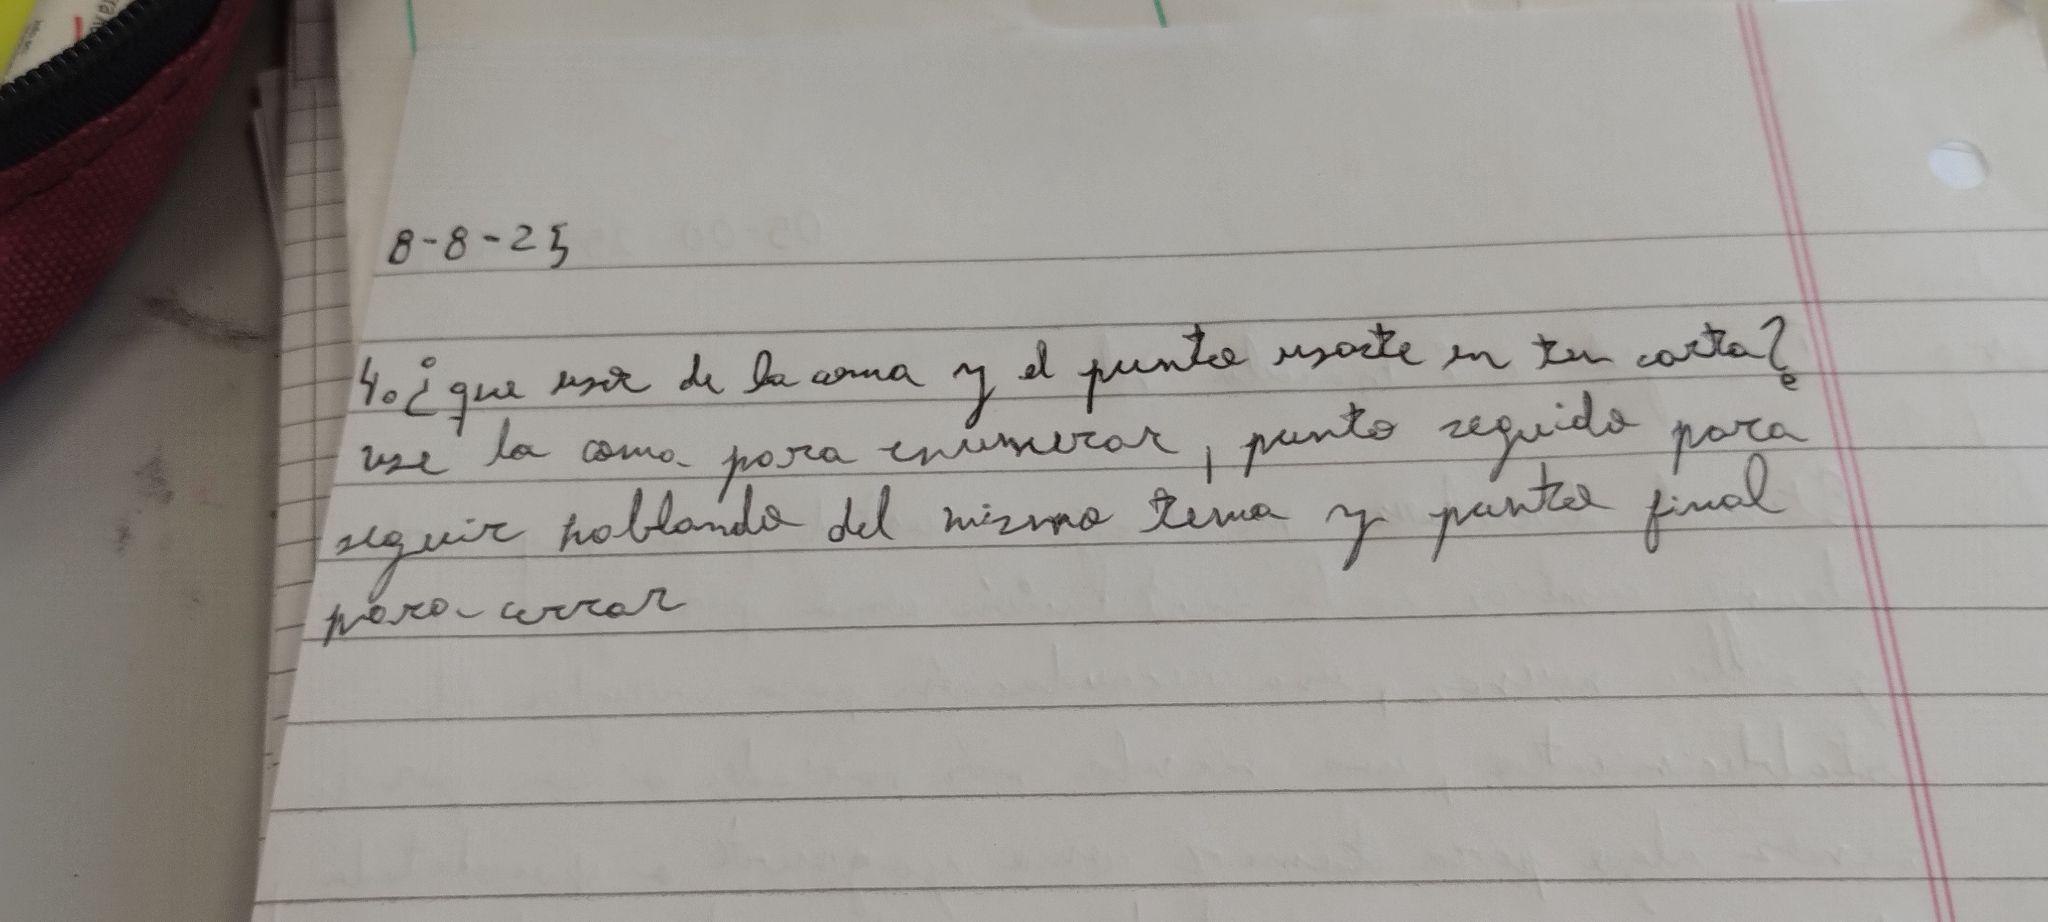 8-8-25
4. ¿que usos de la coma y el punto usaste en tu carta?
use la coma para enumerar, punto seguido para
seguir hablando del mismo tema y punto final
para cerrar